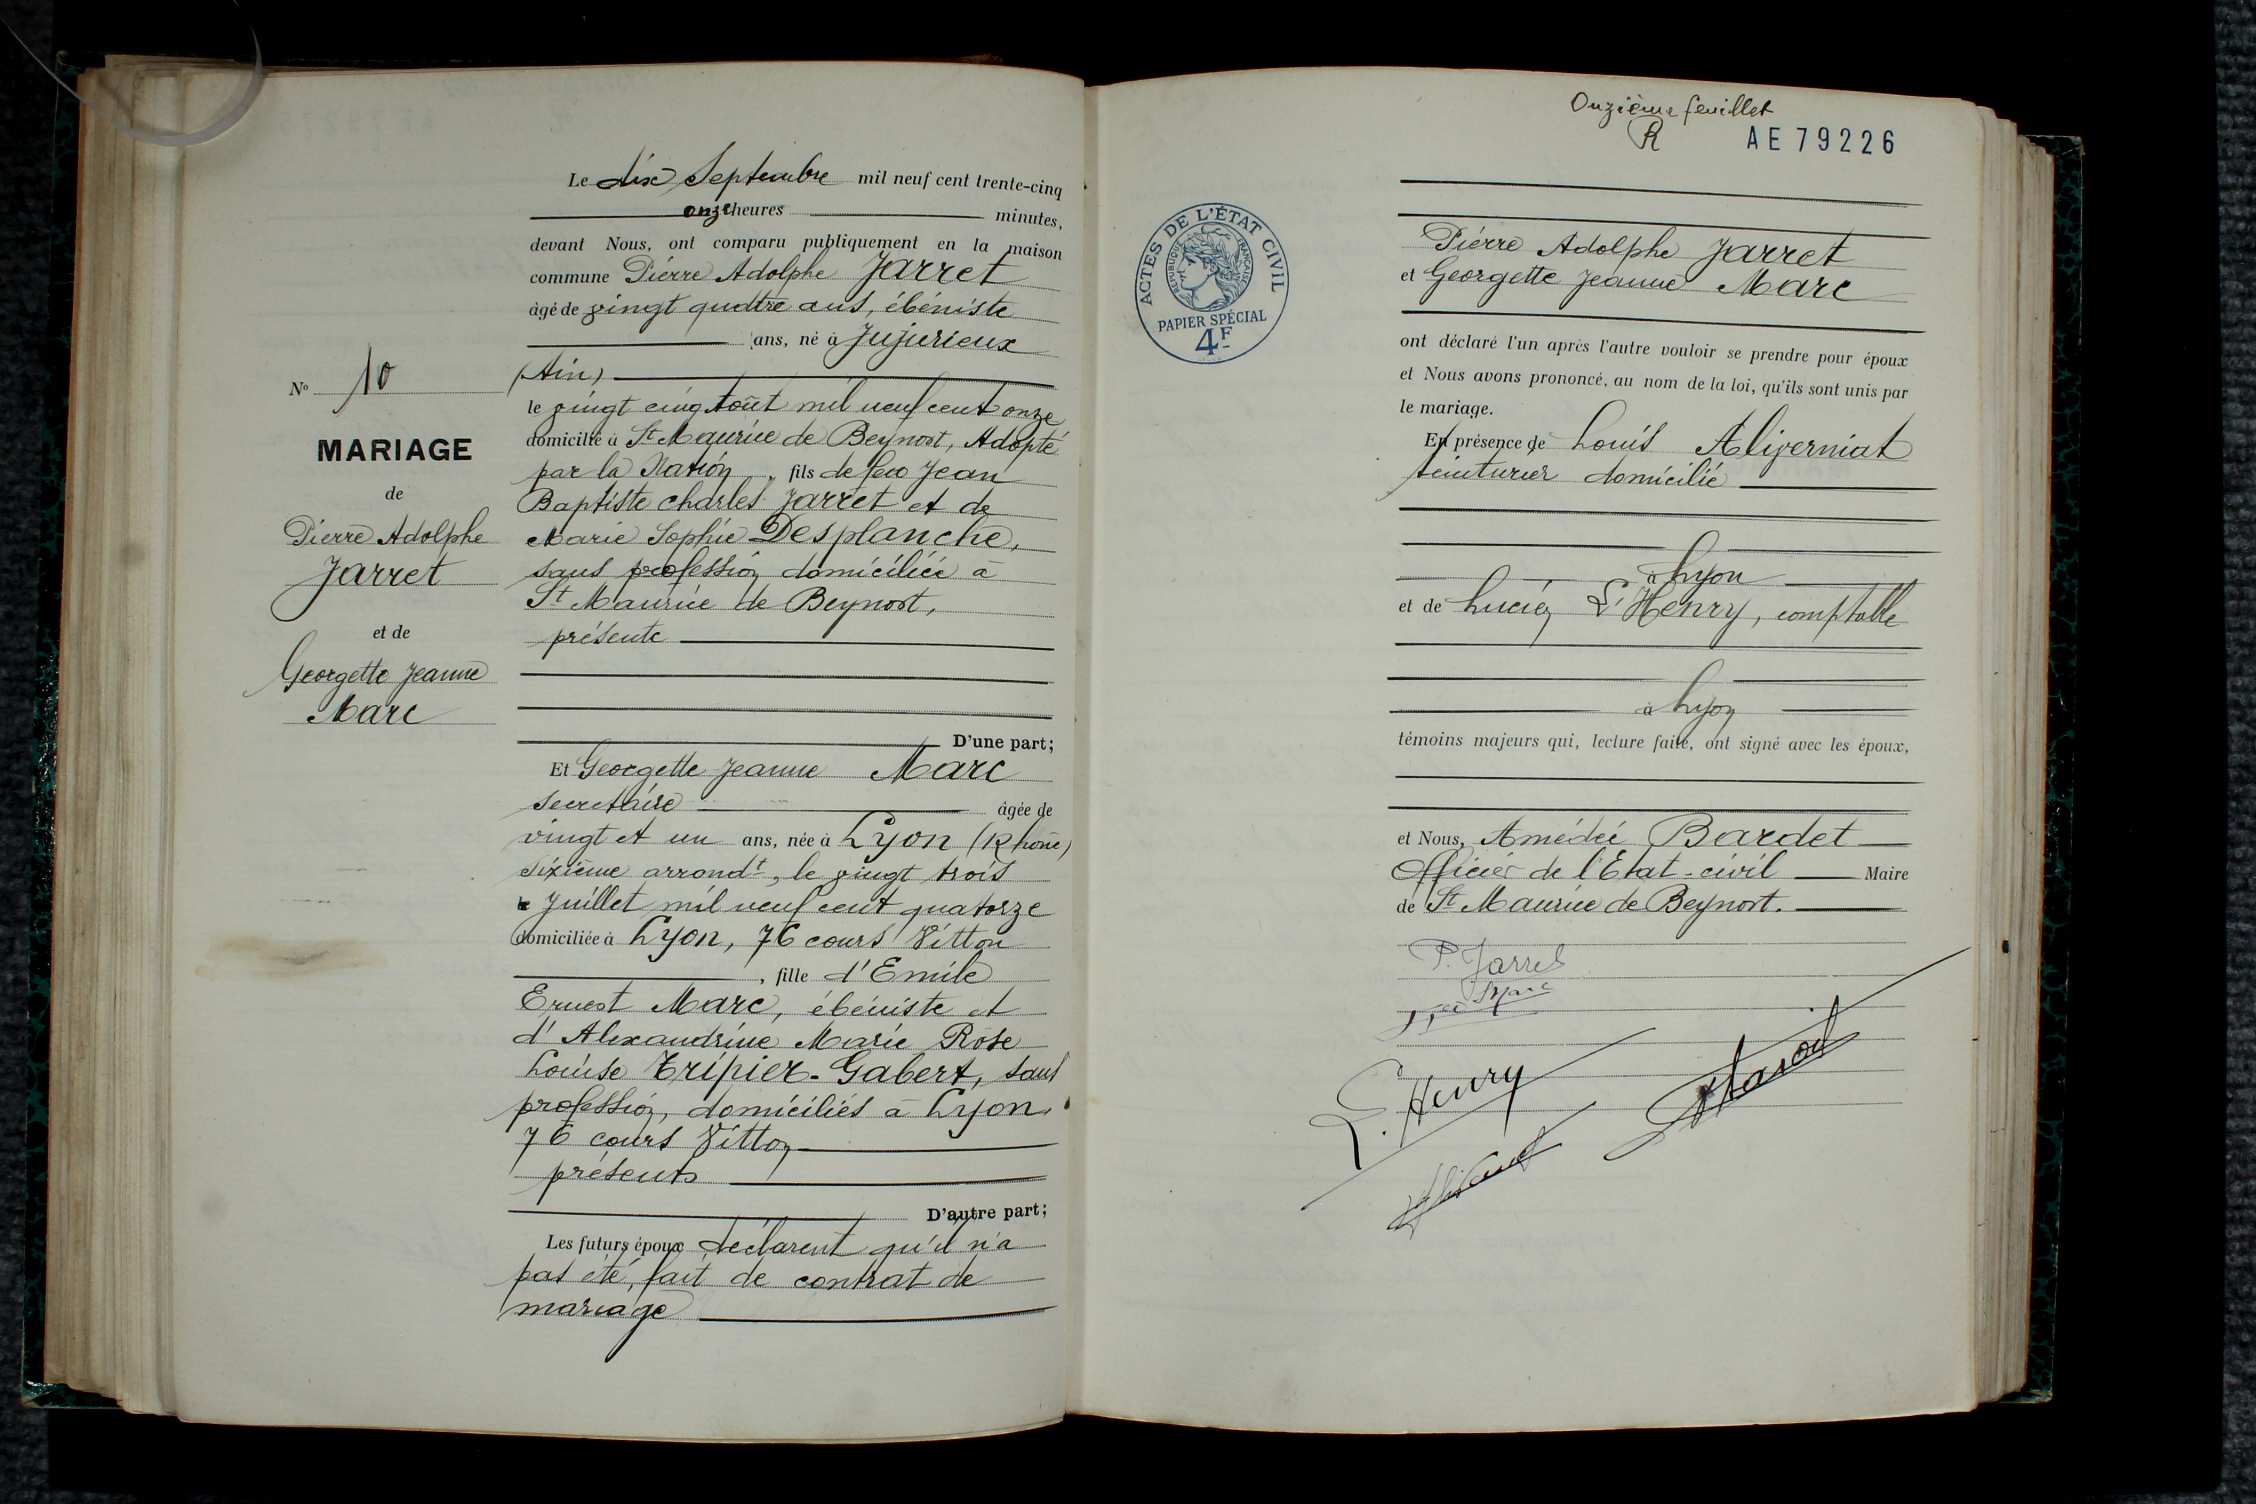 Le dix Septembre mil neuf cent trente-cinq
onze heures minutes,
devant Nous, ont comparu publiquement en la maison
commune Pierre Adolphe Jarret
âgé de vingt quatre ans, ébéniste
ans, né à Jujurieux
(Ain)
le vingt cinq Août mil neuf cent onze
domicilié à St Maurice de Beynost, Adopté
par la Nation, fils de feu Jean
Baptiste Charles Jarret et de
Marie Sophie Desplanche,
sans profession domiciliée à
St Maurice de Beynost,
présente
D'une part;
N° 10
MARIAGE
de
Pierre Adolphe
Jarret
et de
Georgette Jeanne
Marc
Et Georgette Jeanne Marc
secretaire âgée de
vingt et un ans, née à Lyon (Rhône)
sixième arrondt, le vingt trois
Juillet mil neuf cent quatorze
domiciliée à Lyon, 76 cours Vitton
, fille d'Emile
Ernest Marc, ébéniste et
d'Alexandrine Marie Rose
Louise Tripier-Gabert, sans
profession, domiciliés à Lyon,
76 cours Vitton
présents
D'autre part;
Les futurs époux déclarent qu'il n'a
pas été fait de contrat de
mariage
Onzième feuillet
R AE 79226
ACTES DE L'ÉTAT CIVIL
RÉPUBLIQUE FRANÇAISE
PAPIER SPÉCIAL
4F
Pierre Adolphe Jarret
et Georgette Jeanne Marc
ont déclaré l'un après l'autre vouloir se prendre pour époux
et Nous avons prononcé, au nom de la loi, qu'ils sont unis par
le mariage.
En présence de Louis Aliverniat
teinturier domicilié
à Lyon
et de Lucien L'Henry, comptable
à Lyon
témoins majeurs qui, lecture faite, ont signé avec les époux,
et Nous, Amédée Bardet
Officier de l'Etat-civil Maire
de St Maurice de Beynost.
P. Jarret
Marc
L. Henry